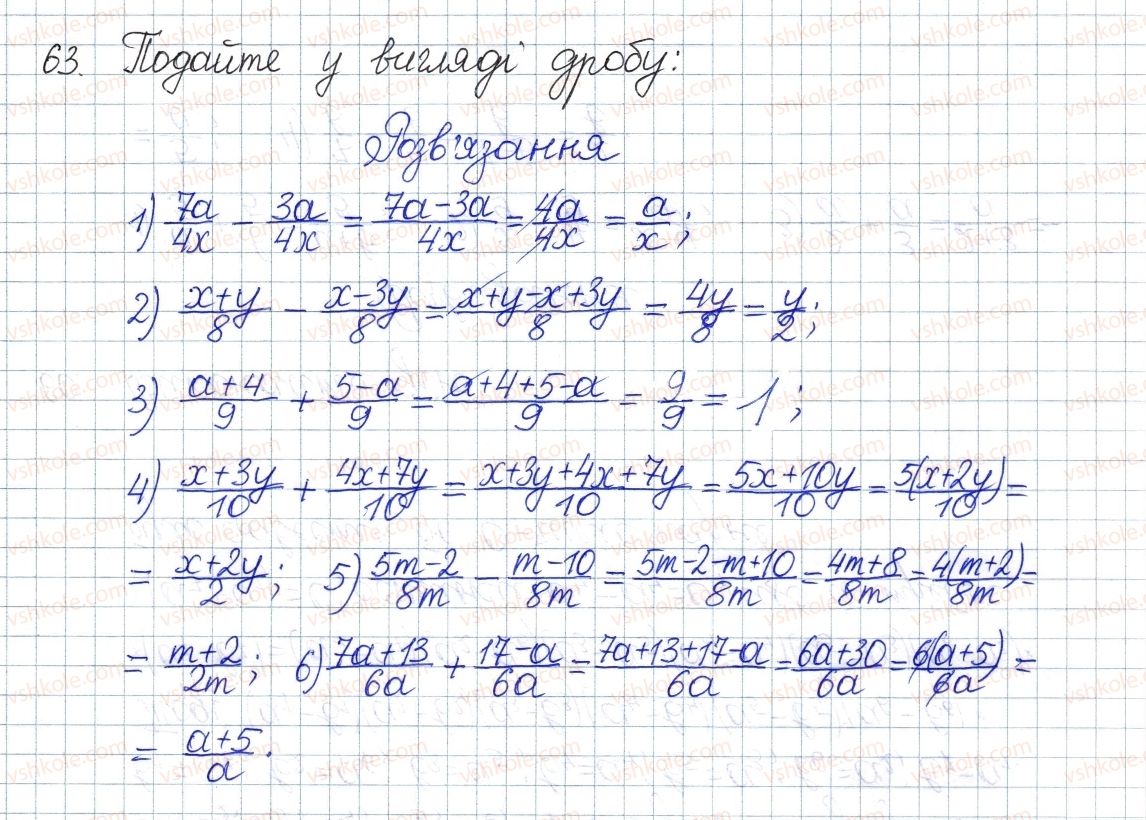 63. Подайте у вигляді дробу:
Розв'язання
1) 7a/4x - 3a/4x = (7a-3a)/4x = 4a/4x = a/x;
2) (x+y)/8 - (x-3y)/8 = (x+y-x+3y)/8 = 4y/8 = y/2;
3) (a+4)/9 + (5-a)/9 = (a+4+5-a)/9 = 9/9 = 1;
4) (x+3y)/10 + (4x+7y)/10 = (x+3y+4x+7y)/10 = (5x+10y)/10 = 5(x+2y)/10 =
= (x+2y)/2; 5) (5m-2)/8m - (m-10)/8m = (5m-2-m+10)/8m = (4m+8)/8m = 4(m+2)/8m =
= (m+2)/2m; 6) (7a+13)/6a + (17-a)/6a = (7a+13+17-a)/6a = (6a+30)/6a = 6(a+5)/6a =
= (a+5)/a.